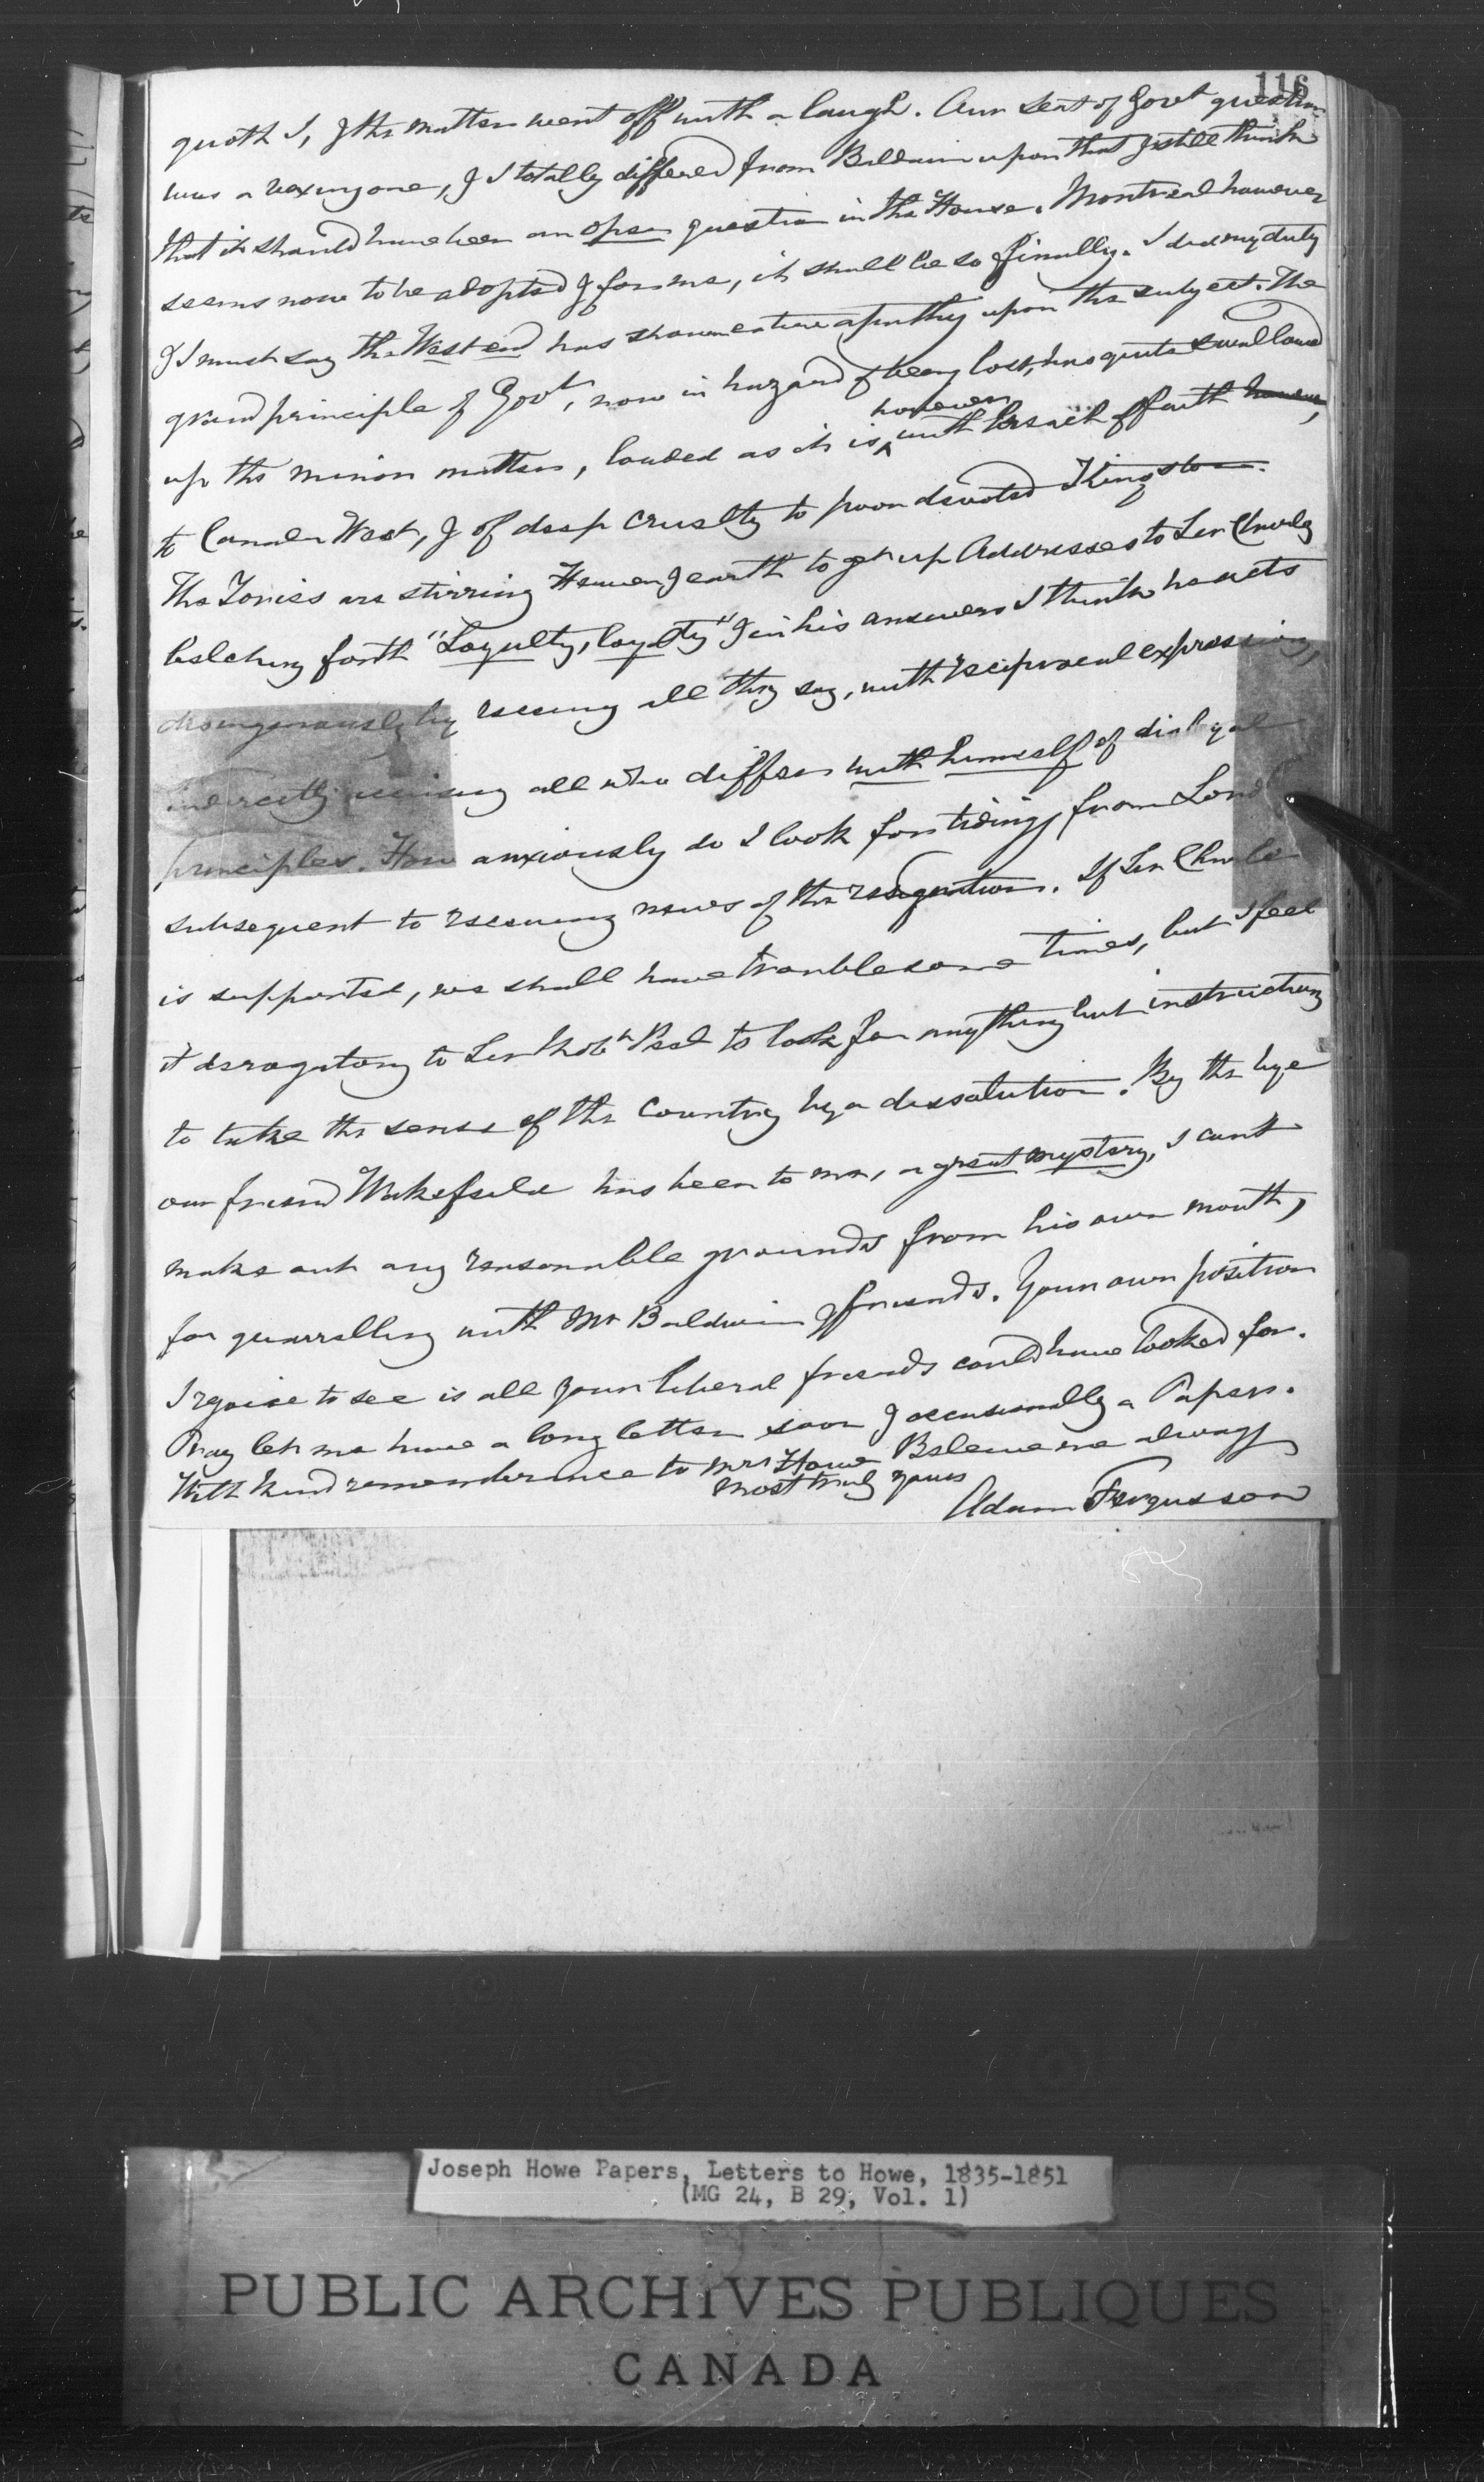 116
quoth I, & the matter went off with a laugh. Our Seat of Govt question
was a vexing one, & I totally differed from Baldwin upon that & still think
that it should have been an open question in the House. Montreal however
seems now to be adopted & for me, it shall be so finally. I did my duty
& I must say the West end has shown entire apathy upon the subject. The
grand principle of Govt, now in hazard of being lost, has quite swallowed
up the minor matter, loaded as it is however with breach of faith however,
to Canada West, & of deep cruelty to poor devoted Kingston.
The Tories are stirring Heaven & earth to get up Addresses to Sir Charles
belching forth "Loyalty, loyalty" & in his answers I think he acts
disingenuously by receiving all they say, with reciprocal expressions,
indirectly accusing all who differ with himself of disloyal
principles. How anxiously do I look for tidings from London
subsequent to receiving news of the resignation. If Sir Charles
is supported, we shall have troublesome times, but I feel
it derogatory to Sir Robt Peel to look for anything but instructions
to take the sense of the Country by a dissolution. By the bye
our friend Wakefield has been to me, a great mystery, I cant
make out any reasonable grounds from his own mouth,
for quarrelling with Mr Baldwin & friends. Your own position
I rejoice to see is all your liberal friends could have looked for.
Pray let me have a long letter soon & occasionally a Paper.
With kind remembrance to Mrs Howe Believe me always
most truly yours
Adam Fergusson
Joseph Howe Papers, Letters to Howe, 1835-1851
(MG 24, B 29, Vol. 1)
PUBLIC ARCHIVES PUBLIQUES
CANADA